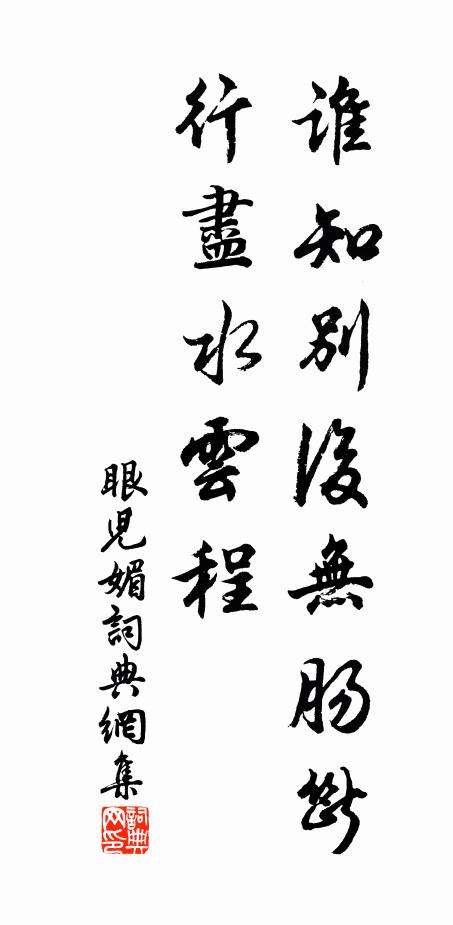 誰知別後無腸斷
行盡水雲程
眼児媚詞典網集
詞典网印